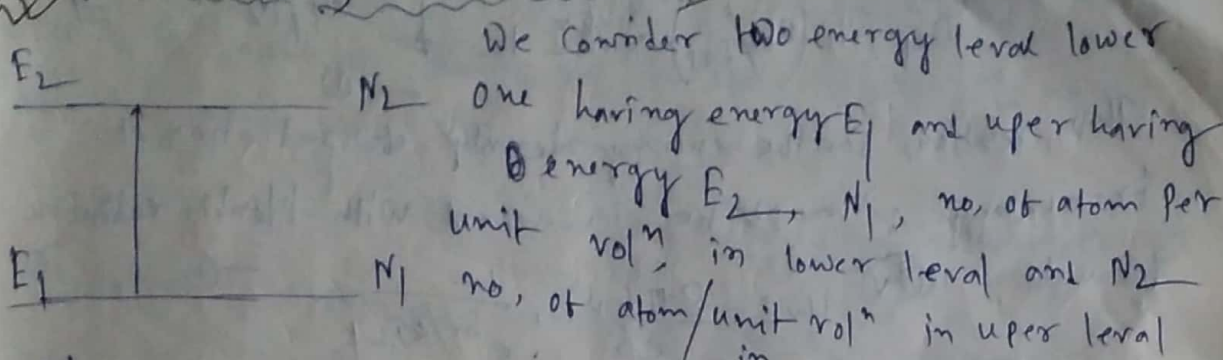 We Consider two energy leval lower
E2
N2 one having energy E1 and uper having
energy E2, N1, no, of atom Per
unit volⁿ, in lower leval and N2
E1
N1 no, of atom/unit volⁿ in uper leval
in